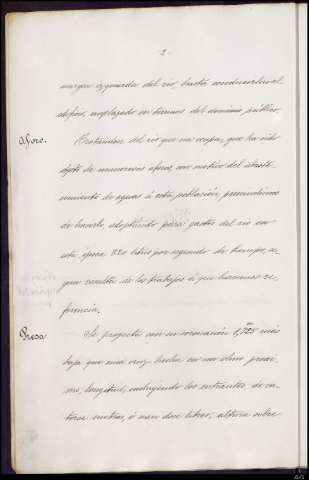 2
margen izquierda del rio, hasta conducirlas al
edificio, emplazado en terrenos del dominio público.
Aforo.
Tratandose del rio que nos ocupa, que ha sido
objeto de numerosos aforos, con motivo del abaste-
cimiento de aguas á esta población, prescindimos
de hacerlo adoptando para gastos del rio en
esta época 820 litros por segundo de tiempo, se-
gun resulta de los trabajos á que hacemos re-
ferencia.
Presa
Se proyecta con su coronación 1,725 más
baja que una cruz hecha en un olmo proxi-
mo; longitud, incluyendo los entrantes, de ca-
torce metros, ó sean doce libres; altura sobre